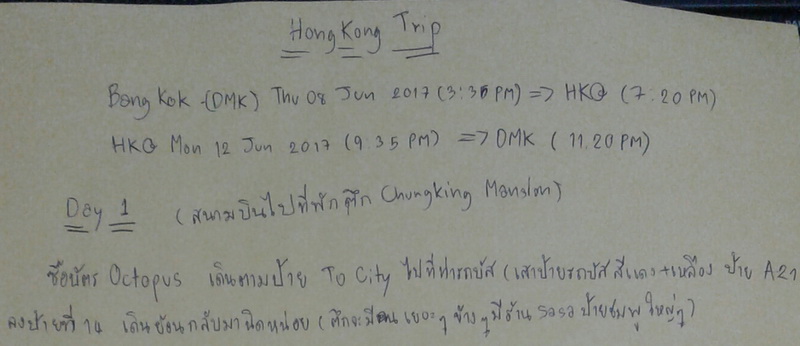 Hong Kong Trip
Bang Kok -(DMK) Thu 08 Jun 2017 (3:35 PM) => HKG (7:20 PM)
HKG Mon 12 Jun 2017 (9:35 PM) => DMK (11.20 PM)
Day 1 (สนามบินไปที่พัก ตึก Chungking Mansion)
ซื้อบัตร Octopus เดินตามป้าย To City ไปที่ท่ารถบัส (เสาป้ายรถบัสสีแดง+เหลือง ป้าย A21
ลงป้ายที่ 14 เดินย้อนกลับมานิดหน่อย (ตึกจะมีคนเยอะๆ ข้างๆ มีร้าน sasa ป้ายชมพูใหญ่ๆ)